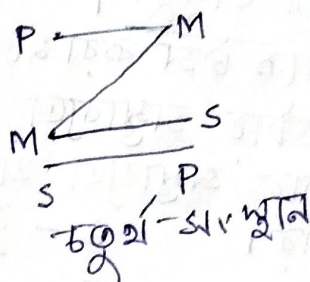 P M
M S
S P
চতুর্থ-সংস্থান